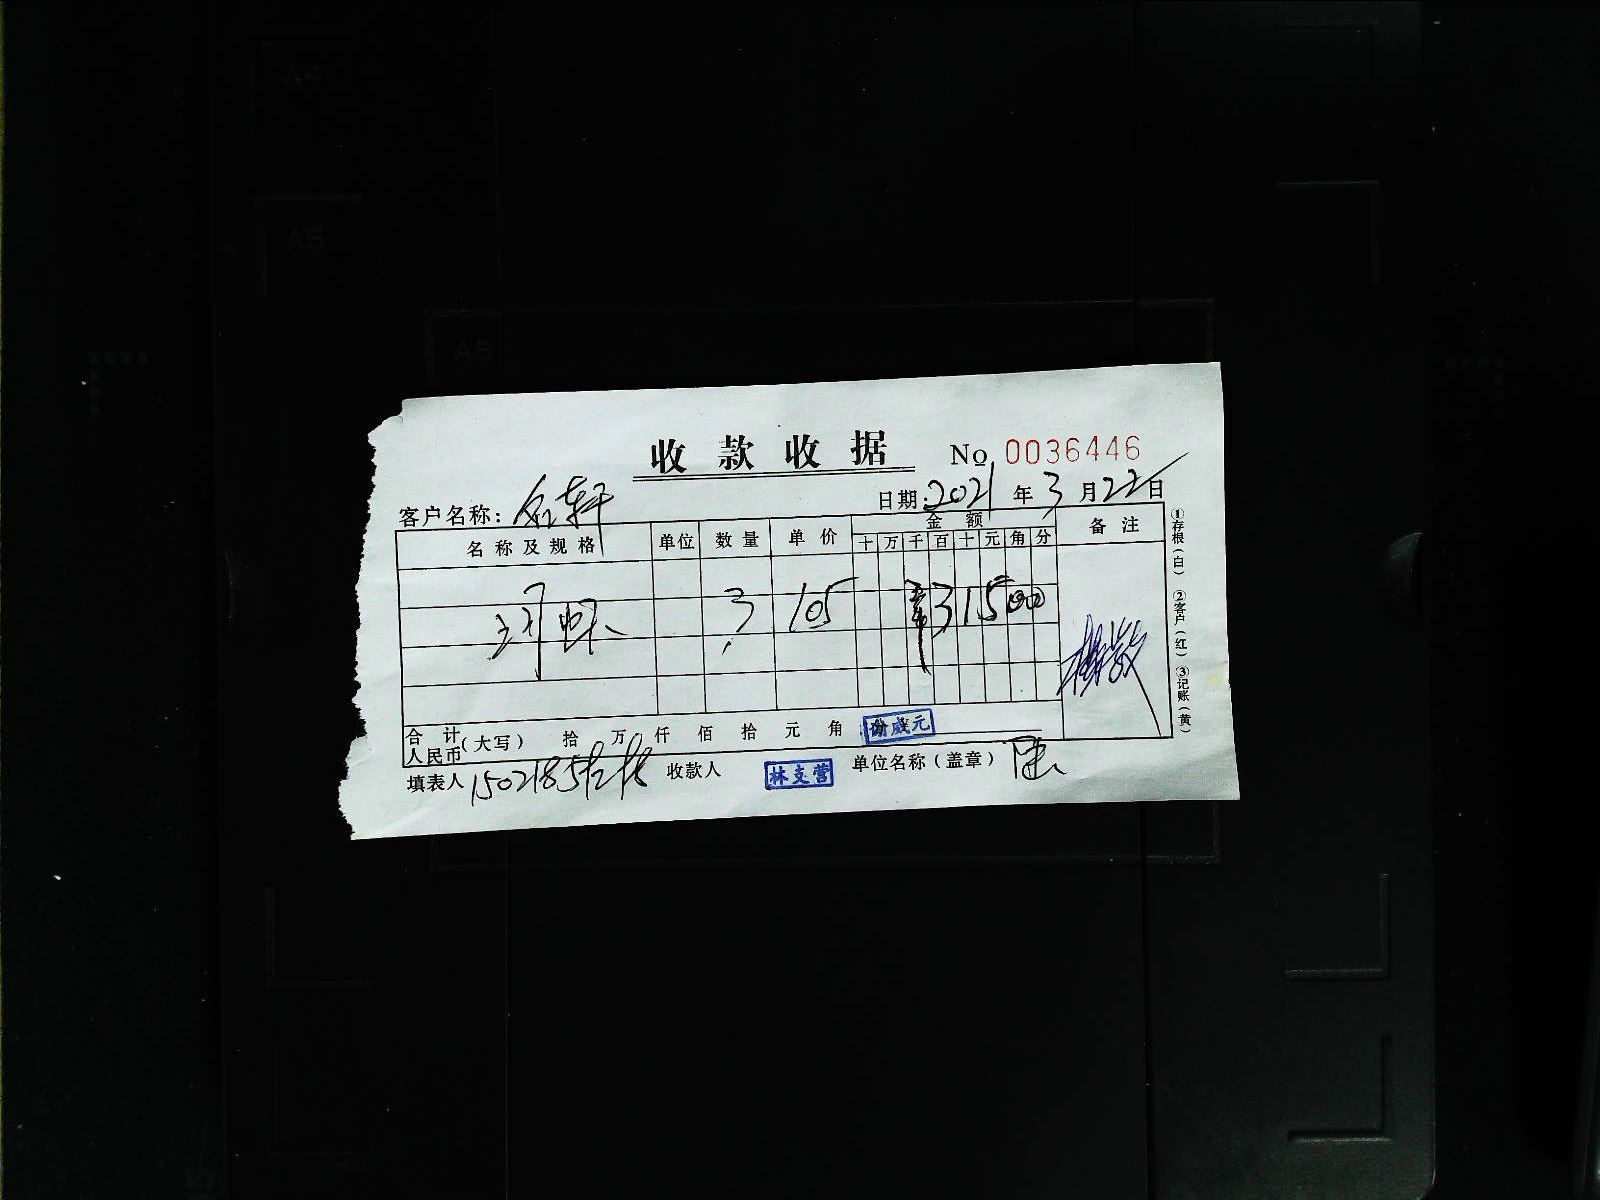 A4
A5
A6
收款收据 No 0036446
客户名称: 日期: 2021 年 3 月 22 日
名称及规格 单位 数量 单价 金额 十 万 千 百 十 元 角 分 备注
河虾 3 105 ¥31500
合计人民币(大写) 拾 万 仟 佰 拾 元 角
填表人 收款人 林支营 单位名称(盖章) 陆
①存根(白) ②客户(红) ③记账(黄)